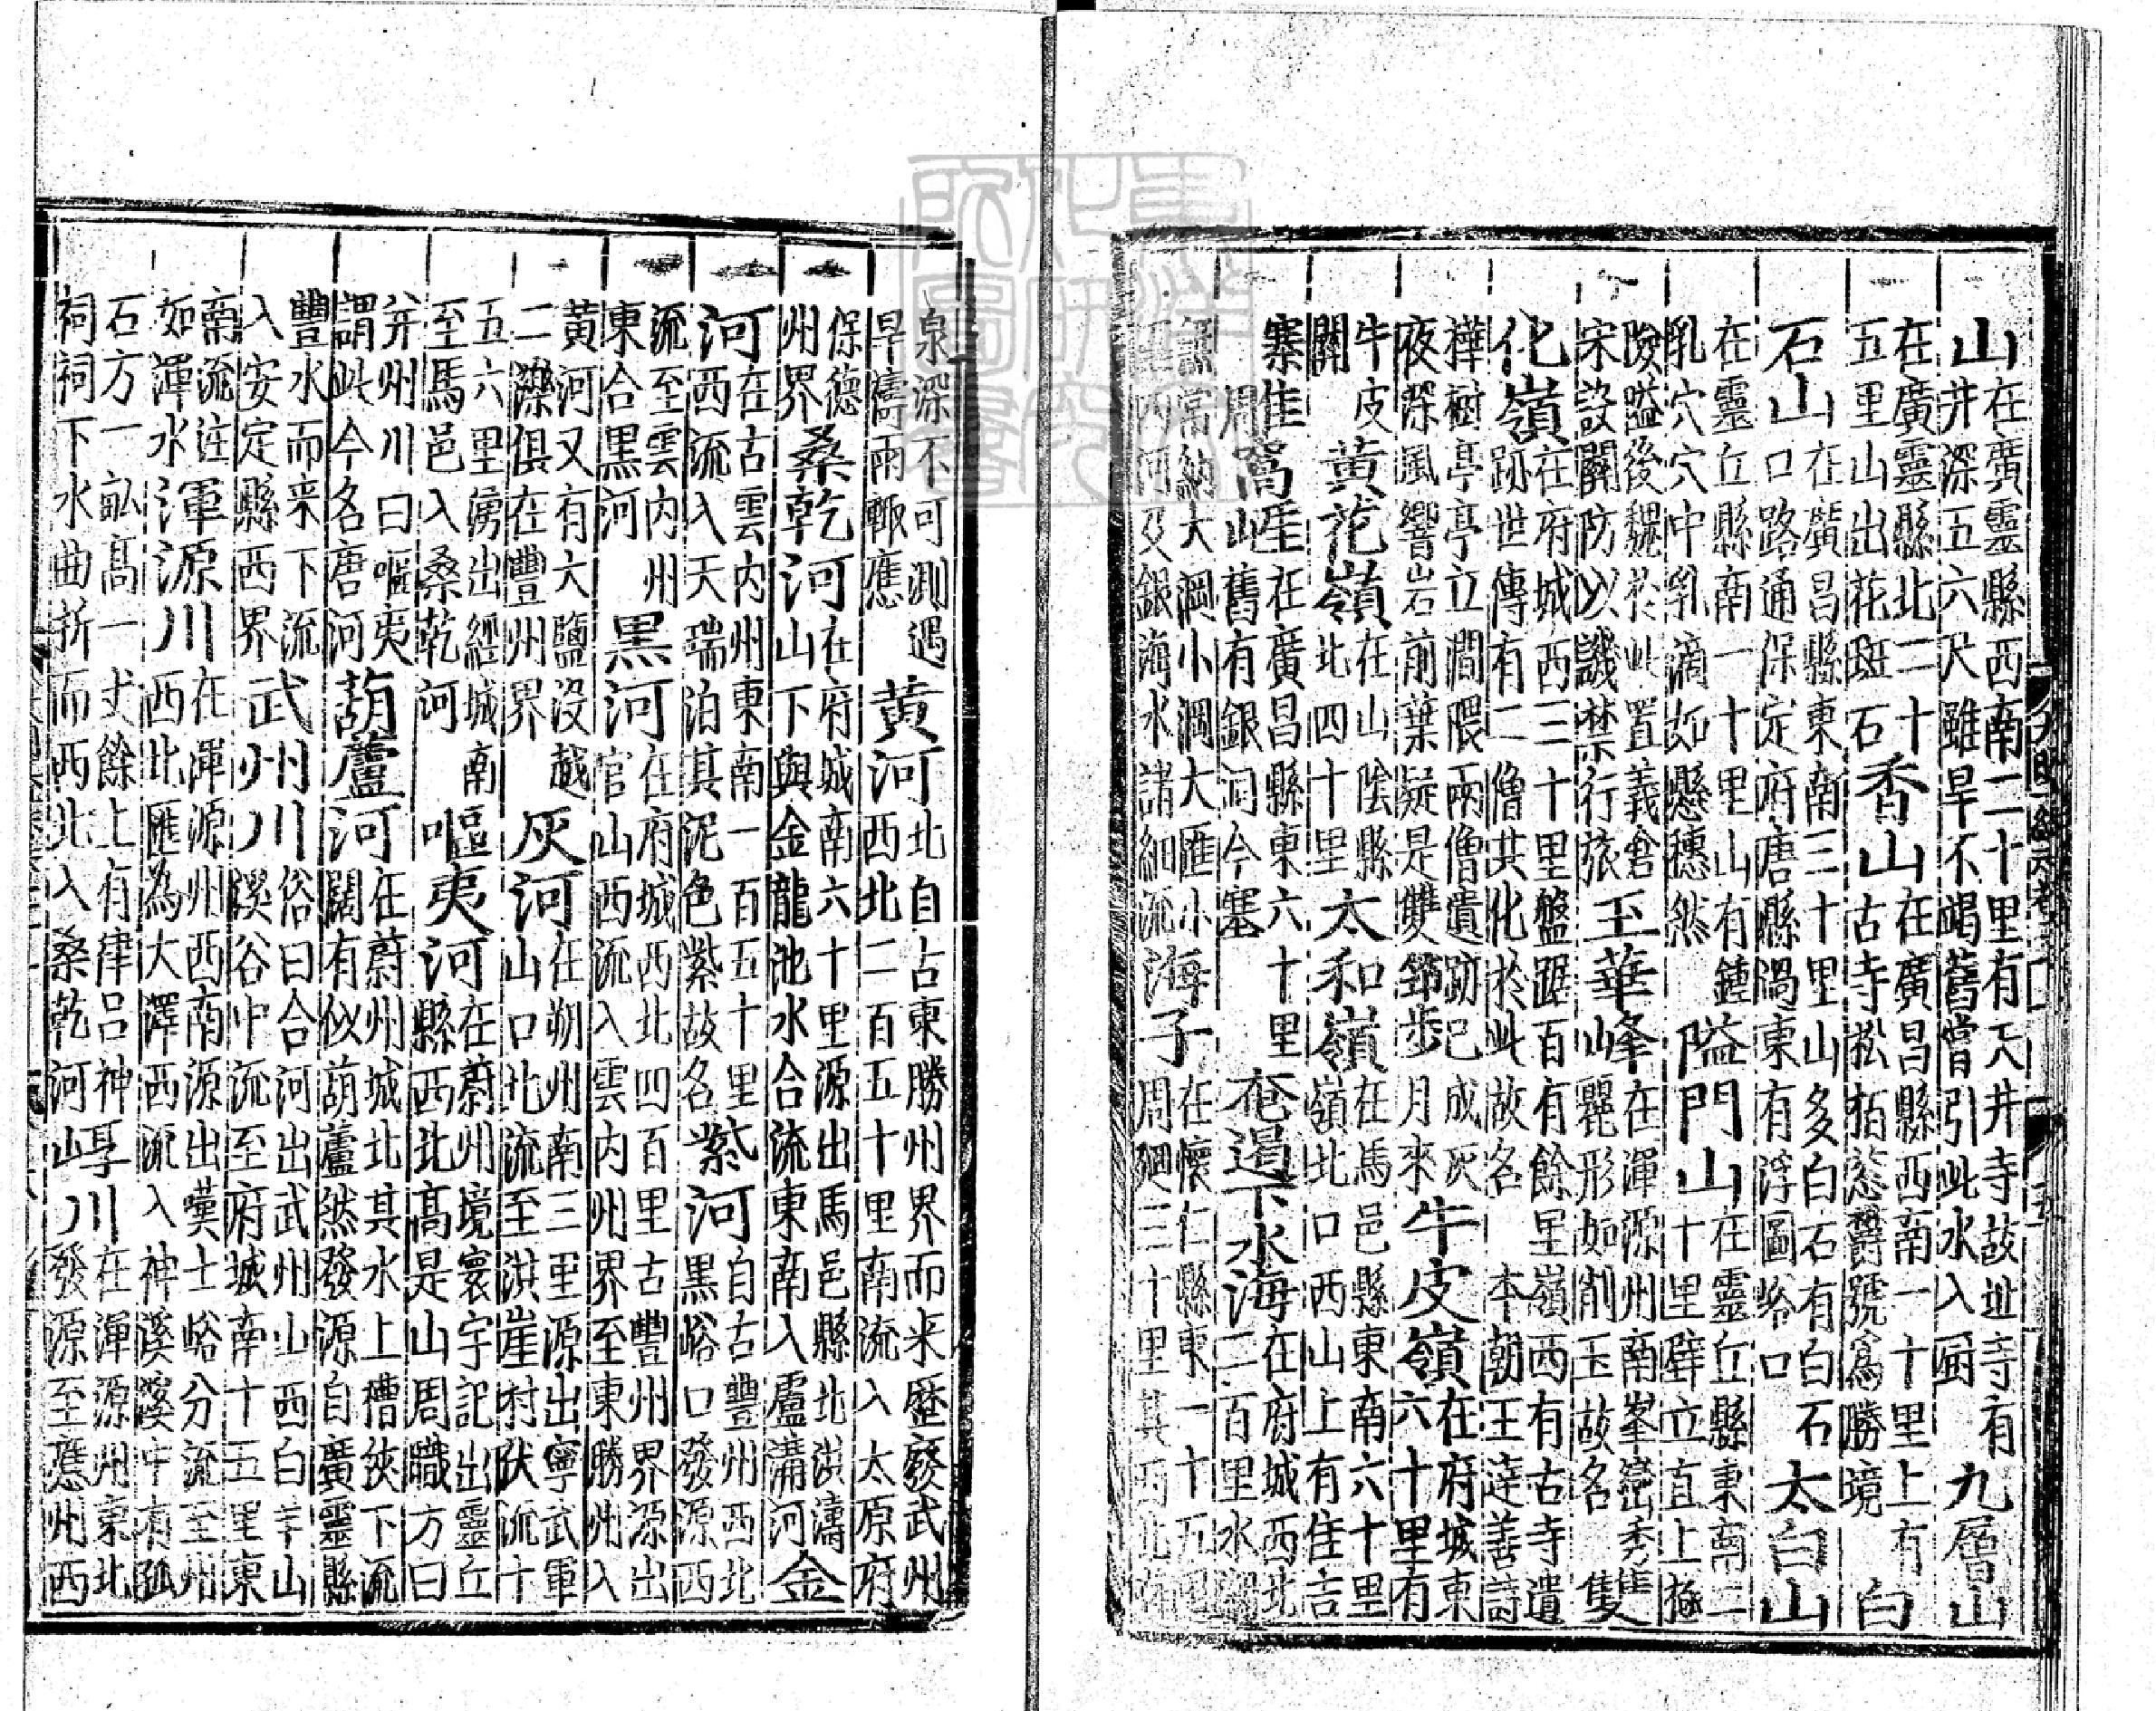 山在廣靈縣西南二十里有天井寺故址寺有井深五六尺雖旱不竭舊嘗引此水入厨九層山
在廣靈縣北二十五里山出花斑石香山在廣昌縣西南一十里上有古寺松栢鬱號爲勝境白
石山在廣昌縣東南三十里山多白石有白石口路通保定府唐縣東有浮圖峪口太白山
在靈丘縣南一十里山有鍾乳穴穴中乳滴如懸穗然隘門山在靈丘縣東南二十里壁立直上極
險隘後魏於此置義倉宋設關防以譏禁行旅玉華峰在渾源州南峯巒秀麗形如削玉故名雙
化嶺在府城西三十里盤踞百有餘里嶺西有古寺遺跡世傳有二僧共化於此故名本朝王達善詩
樺樹亭亭立澗隈兩僧遺跡已成灰夜深風響岩前葉疑是雙節步月來牛皮嶺在府城東六十里有
牛皮關黃花嶺在山陰縣北四十里太和嶺在馬邑縣東南六十里嶺北口西山上有隹吉
寨隹周窩崕在廣昌縣東六十里舊有銀洞今塞奄遏下水海在府城西北二百里水潮
無常納大澗小澗大匯小河及銀海水諸細流海子在懷仁縣東一十五里周廻三十里其西北
泉深不可測遇旱禱雨輒應黃河北自古東勝州界而來歷廢武州西北二百五十里南流入太原府
保德州界桑乾河在府城南六十里源出馬邑縣北洪濤山下與金龍池水合流東南入盧溝河金
河在古雲內州東南一百五十里西流入天瑞泊其泥色紫故名紫河自古豐州西北黑峪口發源西
流至雲內州東合黑河黑河在府城西北四百里古豐州界源出官山西流入雲內州界至東勝州入
黃河又有大鹽沒越二濼俱在豐州界灰河在朔州南三里源出寧武軍山口北流至洪崖村伏流十
五六里湧出經城南至馬邑入桑乾河嘔夷河在蔚州境寰宇記出靈丘縣西北高是山周職方曰
并州川曰嘔夷謂此今名唐河葫蘆河在蔚州城北其水上槽狹下流闊有似葫蘆然發源自廣靈縣
豐水而來下流入安定縣西界武州川俗曰合河出武州山西白羊山溪谷中流至府城南十五里東
南流注如渾水渾源川在渾源州西南源出嘆士峪分流至州西北匯為大澤西流入神溪溪中有孤
石方一畝高一丈餘上有律呂神祠祠下水曲折而西北入桑乾河崞川在渾源州東北發源至應州西